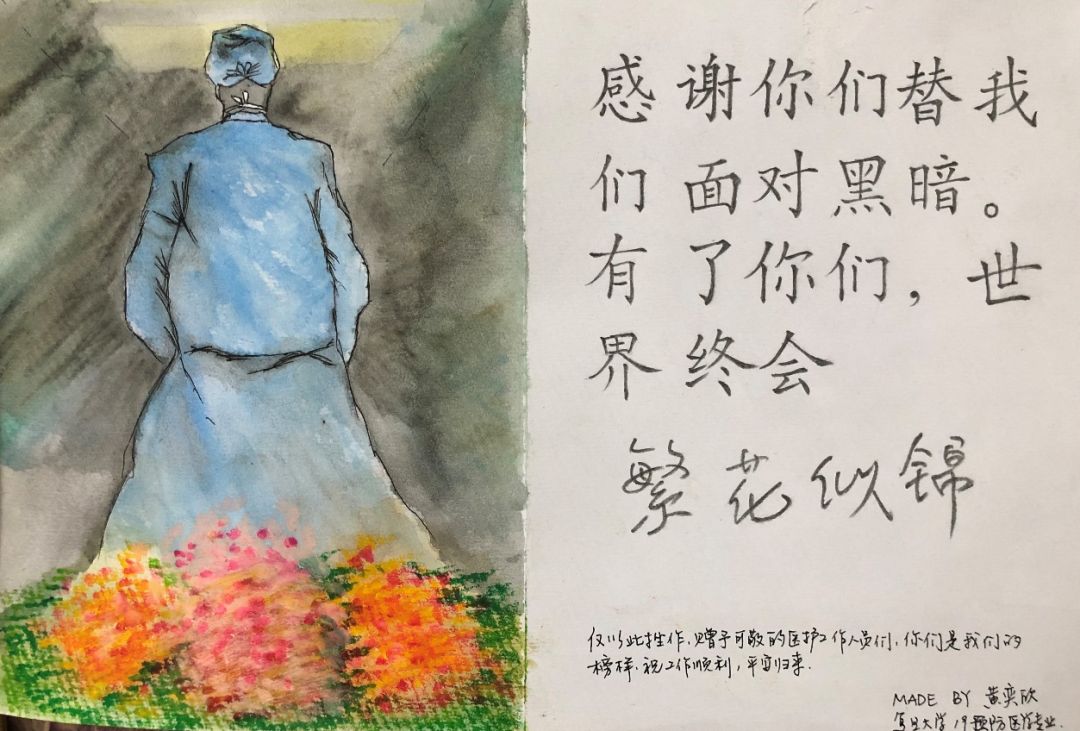 感谢你们替我
们面对黑暗。
有了你们，世
界终会
繁花似锦
仅以此拙作，赠予可敬的医护工作人员们，你们是我们的
榜样，祝工作顺利，平安归来．
MADE BY 黄奕欣
复旦大学 19预防医学专业．